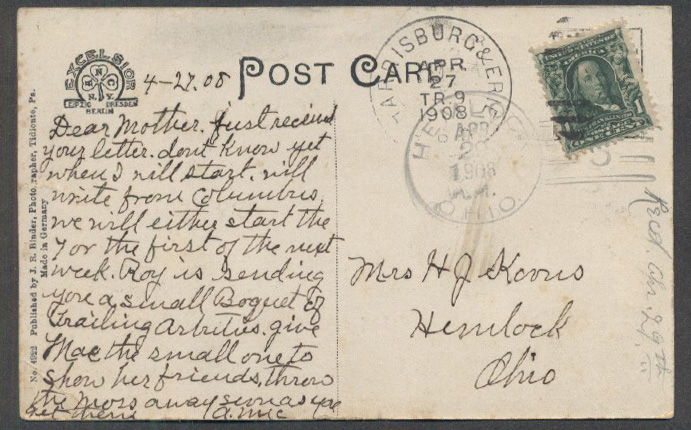 EXCELSIOR
B N C
N.Y.
LEIPZIG DRESDEN
BERLIN
4-27.08
POST CARD
HARRISBURG & ERIE
APR
27
TR.9
1908
HEMLOCK
APR
1908
A.M.
OHIO.
1
No. 4922 Published by J. E. Binder, Photographer, Tidioute, Pa.
Made in Germany
Dear Mother. just received
your letter. dont know yet
when I will start. will
write from Columbus.
we will either start the
7 or the first of the next
week. Roy is sending
you a small Boquet of
Trailing Arbutus. give
Mae the small one to
show her friends, throw
the moss away soon as you
get them
Mrs H J Koons
Hemlock
Ohio
Recd Apr. 29th